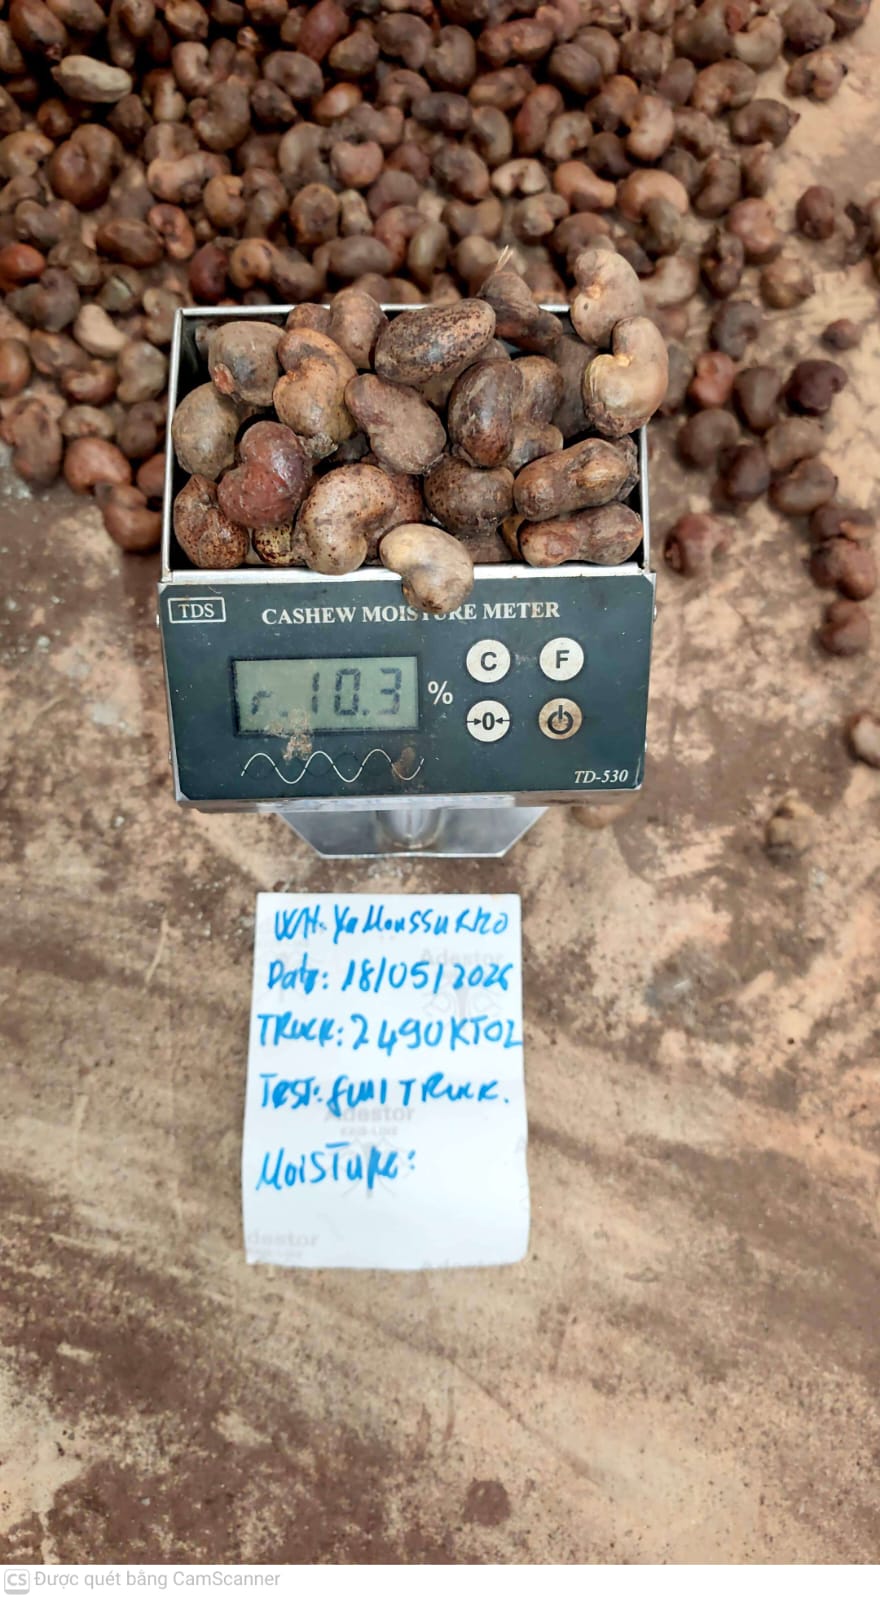 TDS
CASHEW MOISTURE METER
r. 10.3 %
C F
→0←
TD-530
WH: Yamoussukro
Date: 18/05/2026
TRuck: 2490KT02
TEST: full TRuck.
MoisTuRe:
Adestor
Adestor
Adestor
CS Được quét bằng CamScanner